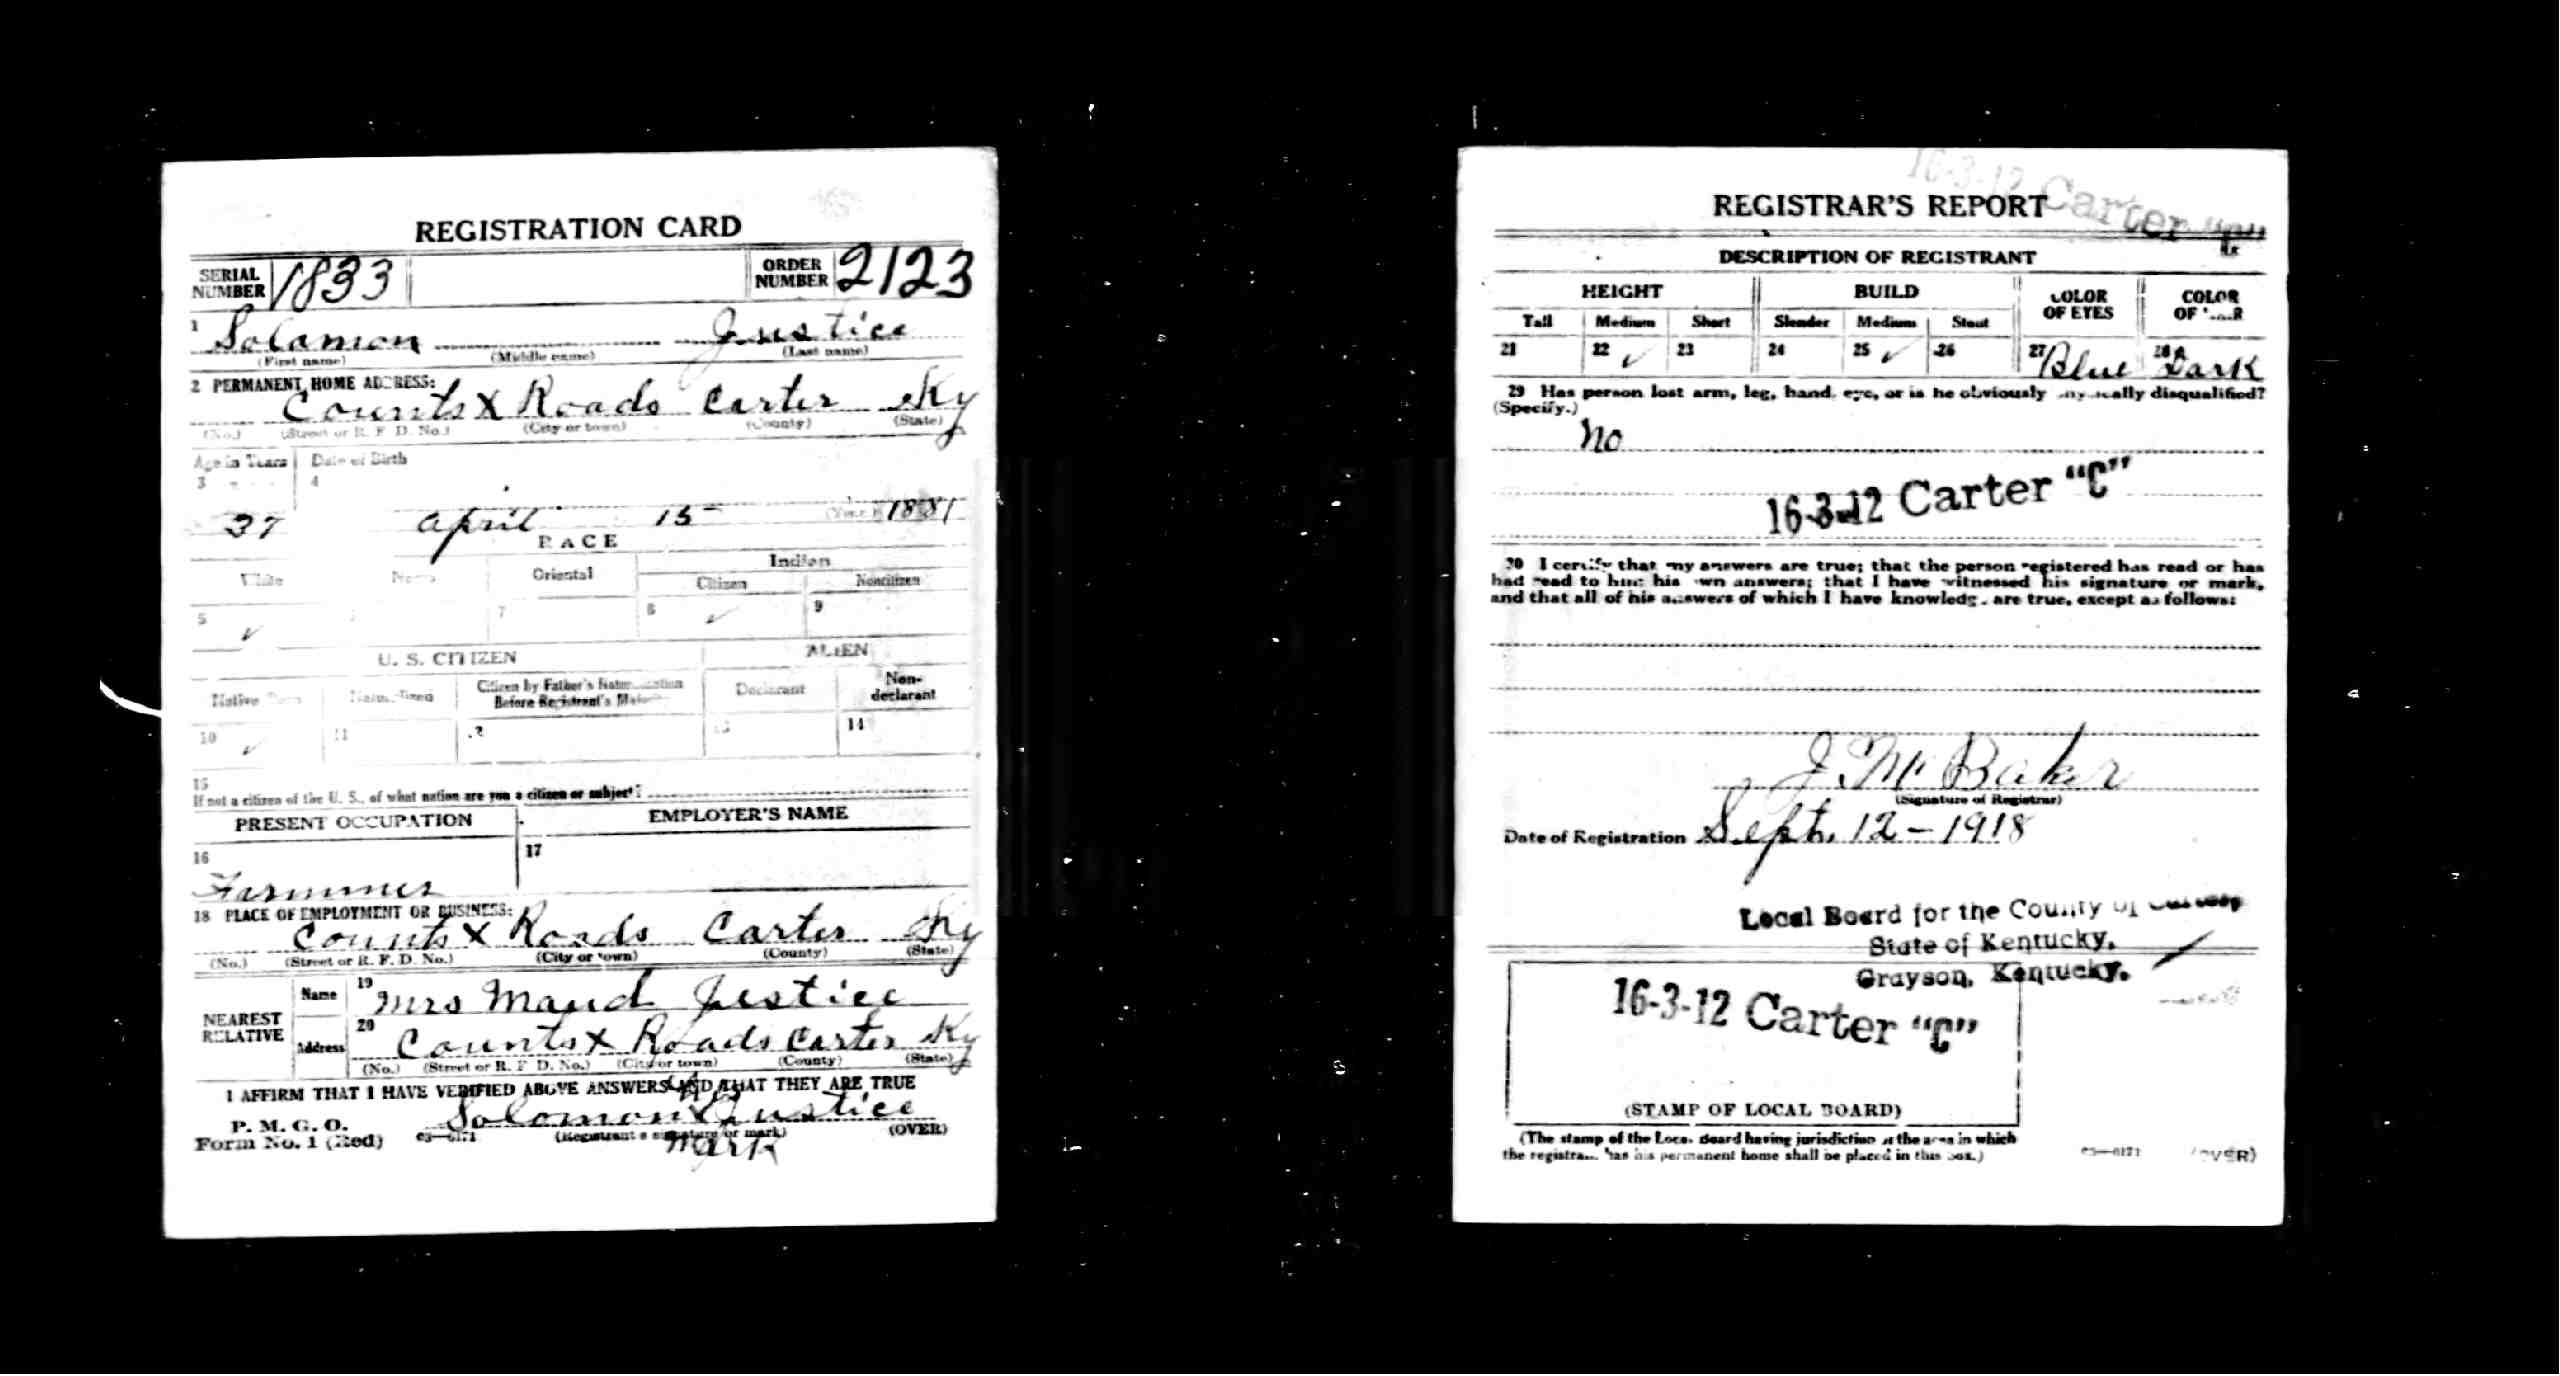 REGISTRATION CARD
SERIAL NUMBER 1833 ORDER NUMBER 2123
1 Solamon Justice
(First name) (Middle name) (Last name)
2 PERMANENT HOME ADDRESS:
Counts X Roads Carter Ky
(No.) (Street or R. F. D. No.) (City or town) (County) (State)
Age in Years Date of Birth
3 4
37 April 15 (Year) 1881
RACE
White Negro Oriental Indian
Citizen Noncitizen
5 ✓ 7 8 ✓ 9
U. S. CITIZEN ALIEN
Native Born Naturalized Citizen by Father's Naturalization Before Registrant's Majority Declarant Non-declarant
10 ✓ 11 12 13 14
15
If not a citizen of the U. S., of what nation are you a citizen or subject?
PRESENT OCCUPATION EMPLOYER'S NAME
16 17
Farmmer
18 PLACE OF EMPLOYMENT OR BUSINESS:
Counts X Roads Carter Ky
(No.) (Street or R. F. D. No.) (City or town) (County) (State)
NEAREST RELATIVE Name 19 Mrs Maud Justice
Address 20 Counts X Roads Carter Ky
(No.) (Street or R. F. D. No.) (City or town) (County) (State)
I AFFIRM THAT I HAVE VERIFIED ABOVE ANSWERS AND THAT THEY ARE TRUE
P. M. G. O.
Form No. 1 (Red) 03—6171 Solomon X Justice
(Registrant's signature or mark) (OVER)
Mark
16-3-12 Carter "C"
REGISTRAR'S REPORT
DESCRIPTION OF REGISTRANT
HEIGHT BUILD COLOR OF EYES COLOR OF HAIR
Tall Medium Short Slender Medium Stout
21 22 ✓ 23 24 25 ✓ 26 27 Blue 28 Dark
29 Has person lost arm, leg, hand, eye, or is he obviously physically disqualified?
(Specify.)
No
16-3-12 Carter "C"
30 I certify that my answers are true; that the person registered has read or has
had read to him his own answers; that I have witnessed his signature or mark,
and that all of his answers of which I have knowledge are true, except as follows:
J. M. Baker
(Signature of Registrar)
Date of Registration Sept. 12-1918
Local Board for the County of Carter,
State of Kentucky,
Grayson, Kentucky.
16-3-12 Carter "C"
(STAMP OF LOCAL BOARD)
(The stamp of the Local Board having jurisdiction of the area in which
the registrant has his permanent home shall be placed in this box.)
03—6171 (OVER)